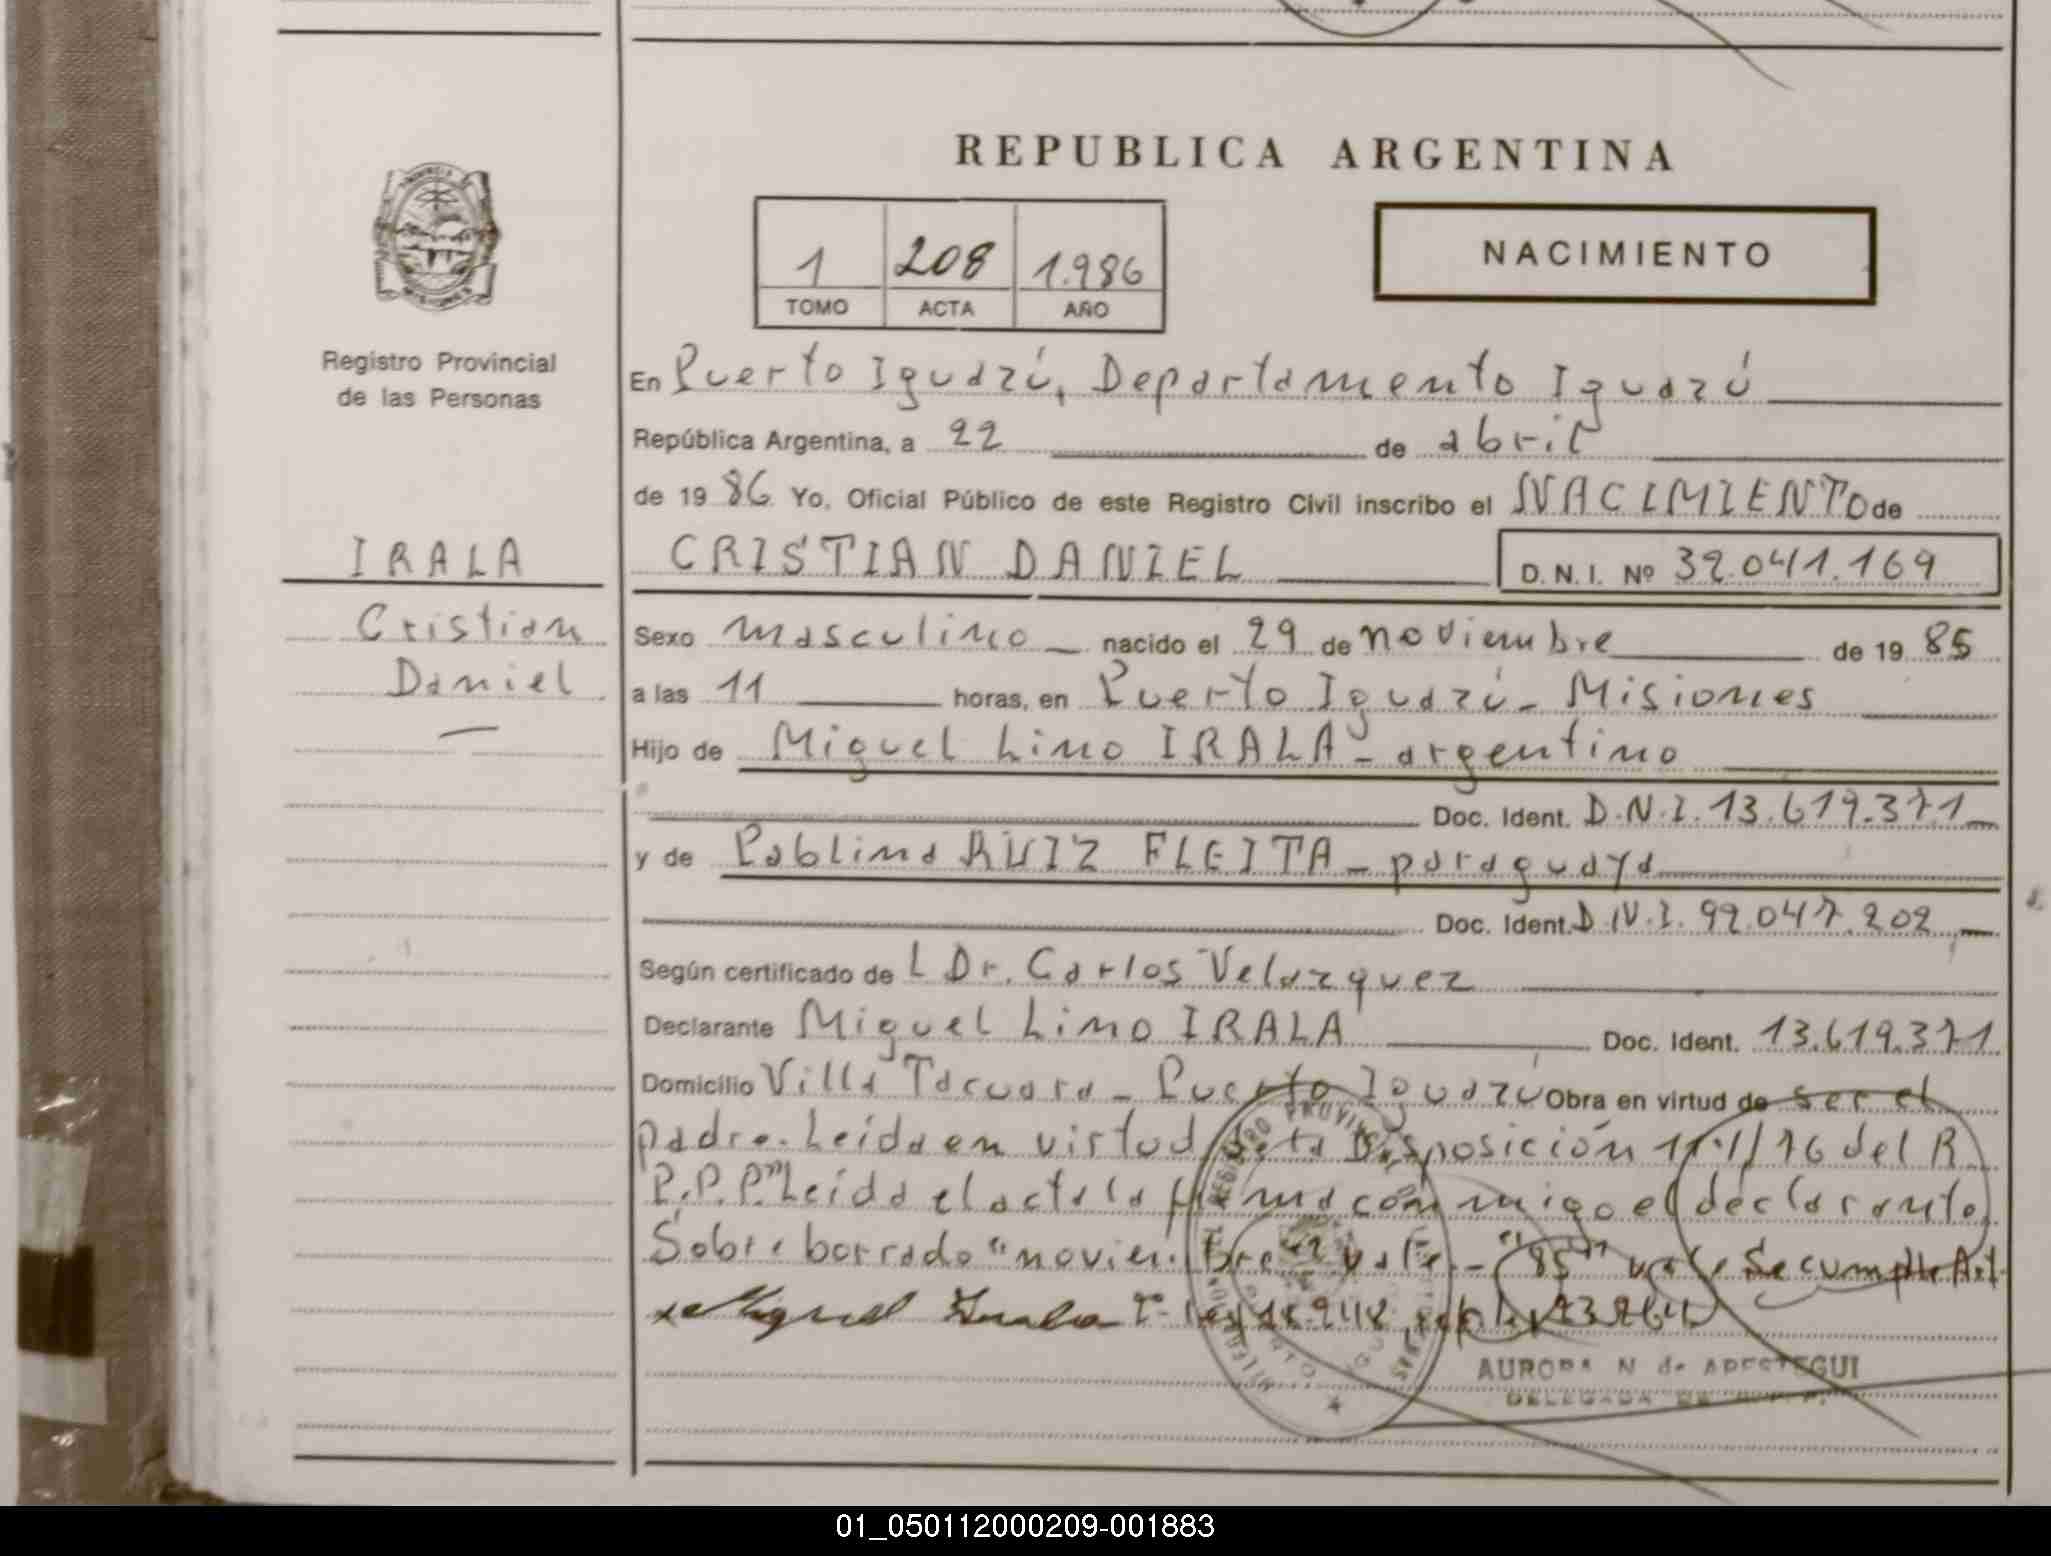 REPUBLICA ARGENTINA
1 208 1.986
TOMO ACTA AÑO
NACIMIENTO
Registro Provincial
de las Personas
En Puerto Iguazú, Departamento Iguazú
República Argentina, a 22 de abril
de 19 86 Yo, Oficial Público de este Registro Civil inscribo el NACIMIENTO de
IRALA
CRISTIAN DANIEL D. N. I. Nº 32.041.169
Cristian
Daniel
Sexo masculino nacido el 29 de noviembre de 19 85
a las 11 horas, en Puerto Iguazú - Misiones
Hijo de Miguel Lino IRALA - argentino
Doc. Ident. D.N.I. 13.619.371
y de Pablina RUIZ FLEITA - paraguaya
Doc. Ident. D.N.I. 92.047.202
Según certificado de L Dr. Carlos Velazquez
Declarante Miguel Lino IRALA Doc. Ident. 13.619.371
Domicilio Villa Tacuara - Puerto Iguazú Obra en virtud de ser el
padre. Leída en virtud de la Disposición /76 del R.
P.P. Leída el acta la firma conmigo el declarante.
Sobre borrado "noviembre" vale - "85" vale Se cumple Art.
Miguel Irala
AURORA N de APESTEGUI
DELEGADA DE
01_050112000209-001883